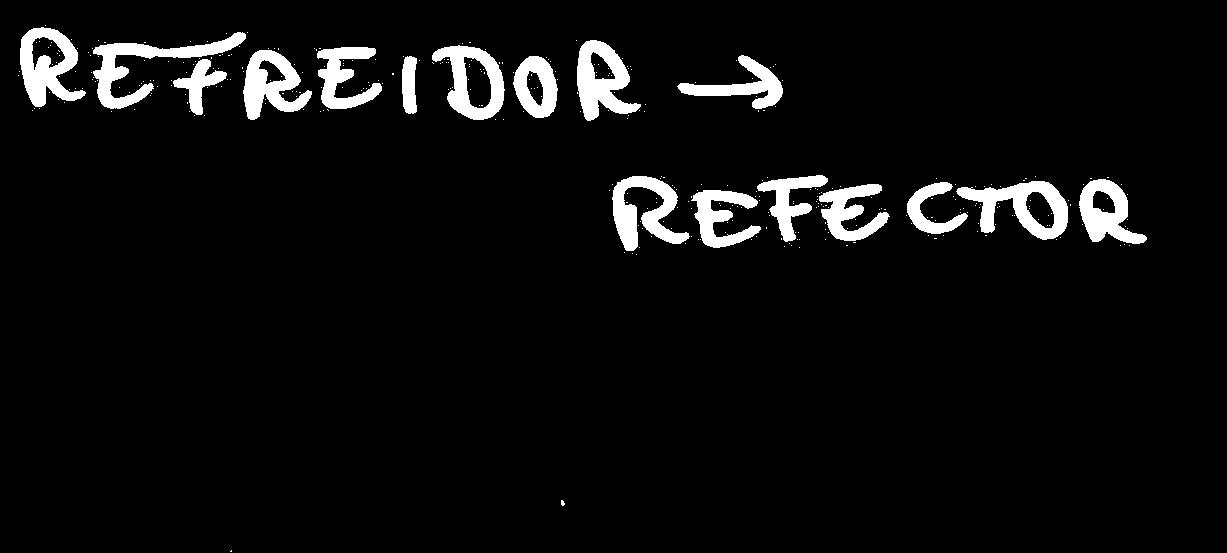 REFREIDOR →
REFECTOR